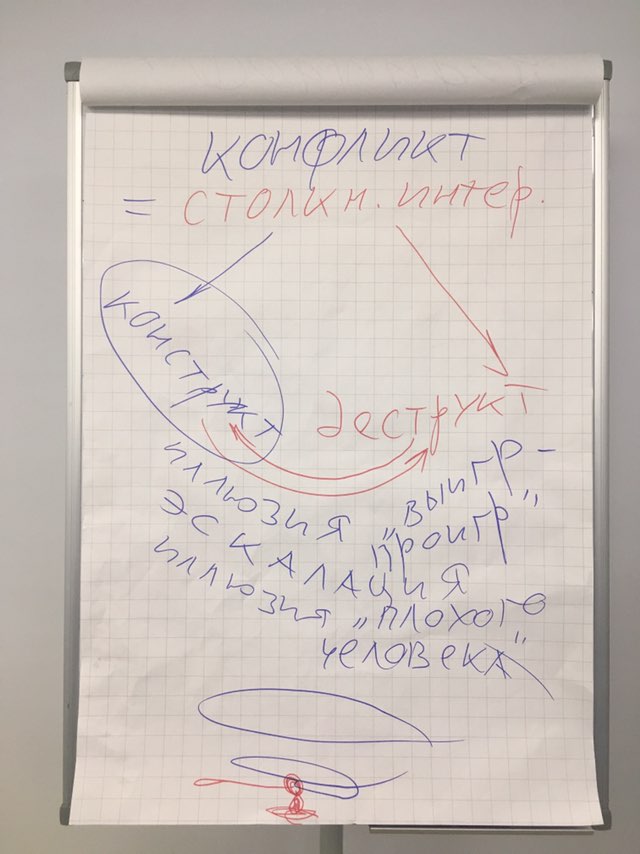 КОНФЛИКТ
= СТОЛКН. ИНТЕР.
КОНСТРУКТ
ДЕСТРУКТ
ИЛЛЮЗИЯ „ВЫИГР-
ПРОИГР”
ЭСКАЛАЦИЯ
ИЛЛЮЗИЯ „ПЛОХОГО
ЧЕЛОВЕКА”